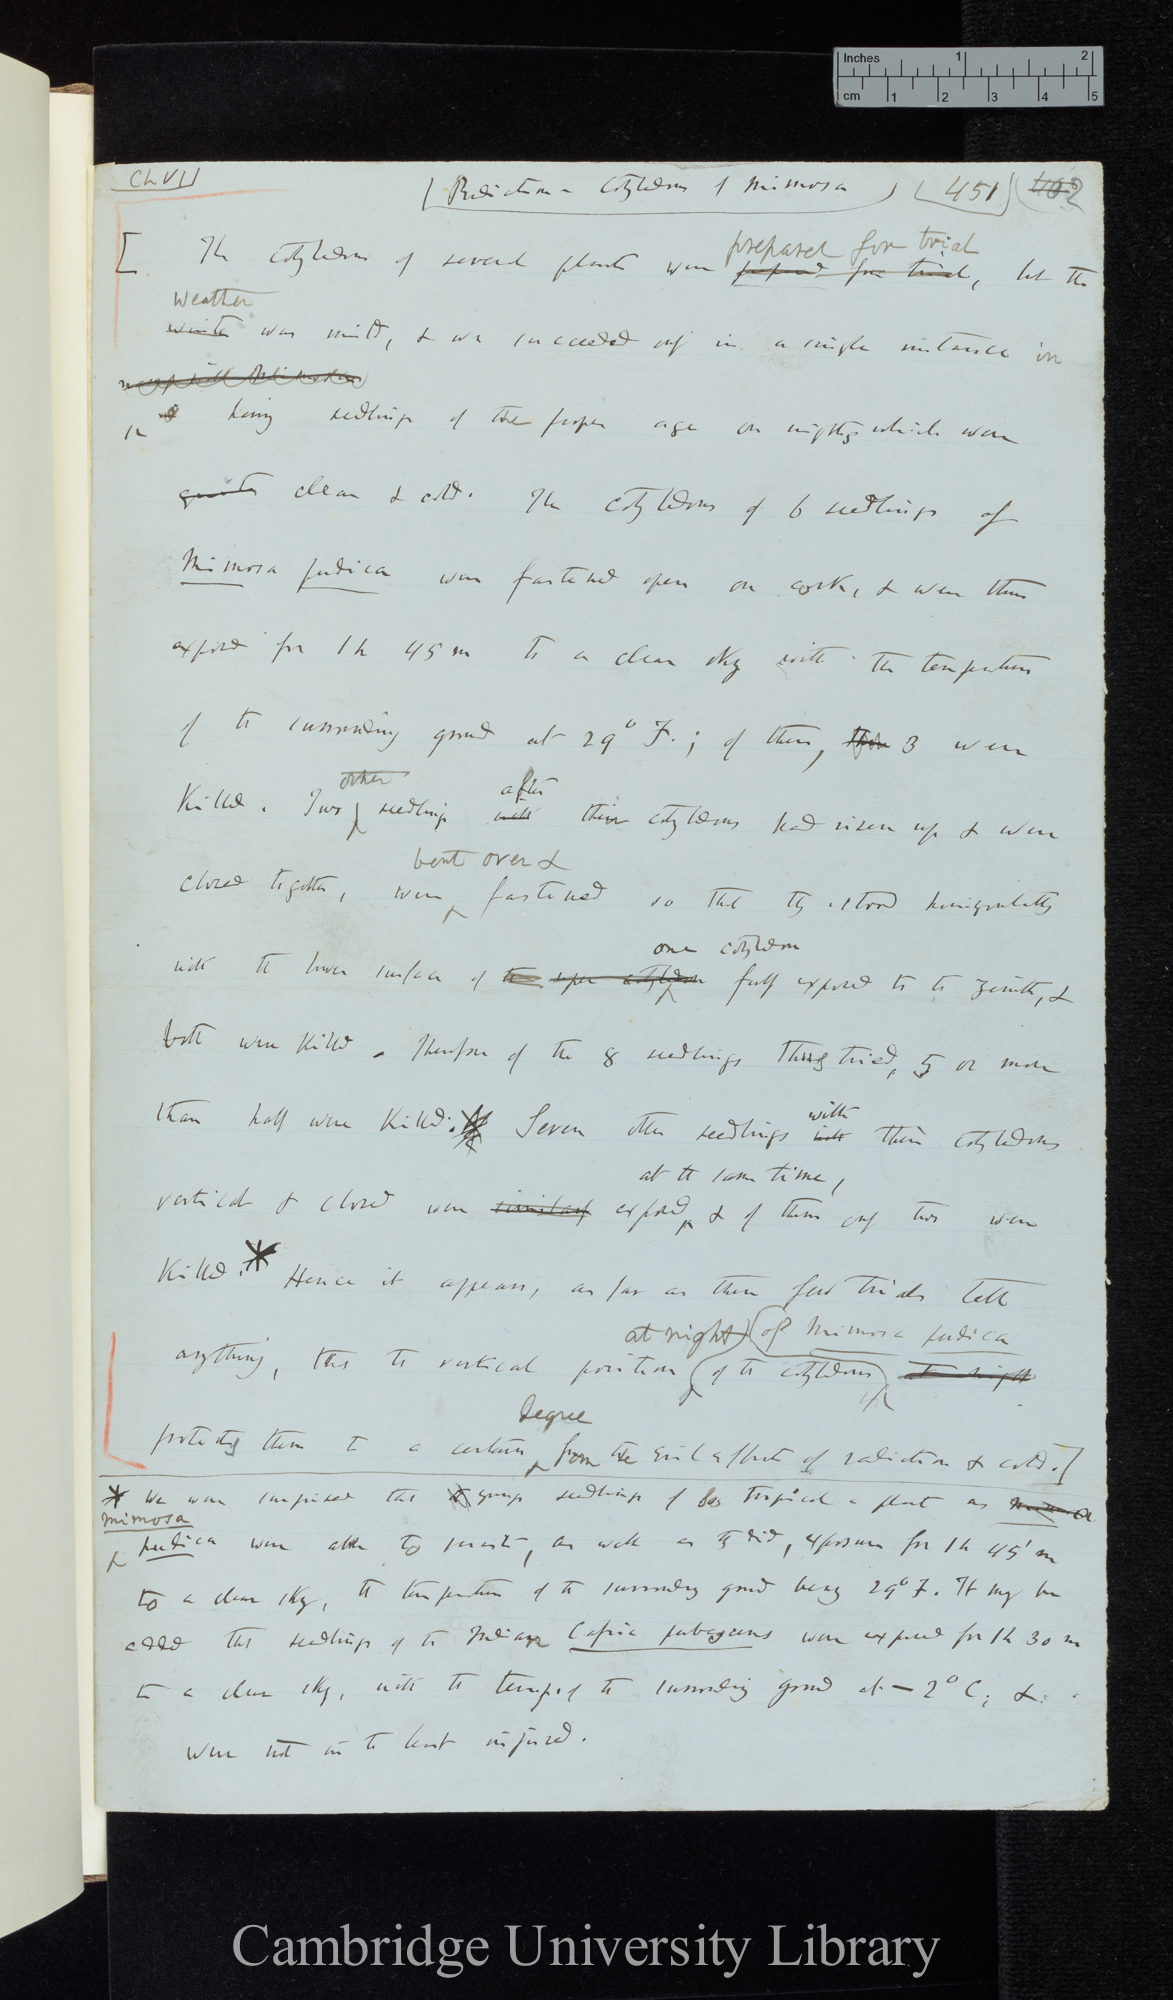 Inches 1 2
cm 1 2 3 4 5
Ch VI
(Radiation – Cotyledons of Mimosa) (451) 402
[ The cotyledons of several plants were prepared for trial, but the
prepared for trial
weather
winter was mild, & we succeeded only in a single instance in
in having seedlings of the proper age on nights which were
quite clear & cold. The cotyledons of 6 seedlings of
Mimosa pudica were fastened open on cork, & were thus
exposed for 1 h 45 m to a clear sky with the temperature
of the surrounding ground at 29° F.; of these, three 3 were
other after
killed. Two seedlings with their cotyledons had risen up & were
bent over &
closed together, were fastened so that they stood horizontally
one cotyledon
with the lower surface of the upper cotyledon fully exposed to the zenith, &
both were killed. Therefore of the 8 seedlings thus tried, 5 or more
with
than half were killed. Seven other seedlings with their cotyledons
at the same time,
vertical & closed were similarly exposed, & of these only two were
killed.* Hence it appears, as far as these few trials tell
at night) (of Mimosa pudica
anything, that the vertical position (of the cotyledons) at night
degree
protects them to a certain from the evil effects of radiation & cold.]
* We were surprised that young seedlings of so tropical a plant as Mimosa
Mimosa
pudica were able to resist, as well as they did, exposure for 1 h 45 m
to a clear sky, the temperature of the surrounding ground being 29° F. It may be
added that seedlings of the Indian Cassia pubescens were exposed for 1 h 30 m
to a clear sky, with the temp. of the surrounding ground at – 2° C; &
were not in the least injured.
Cambridge University Library